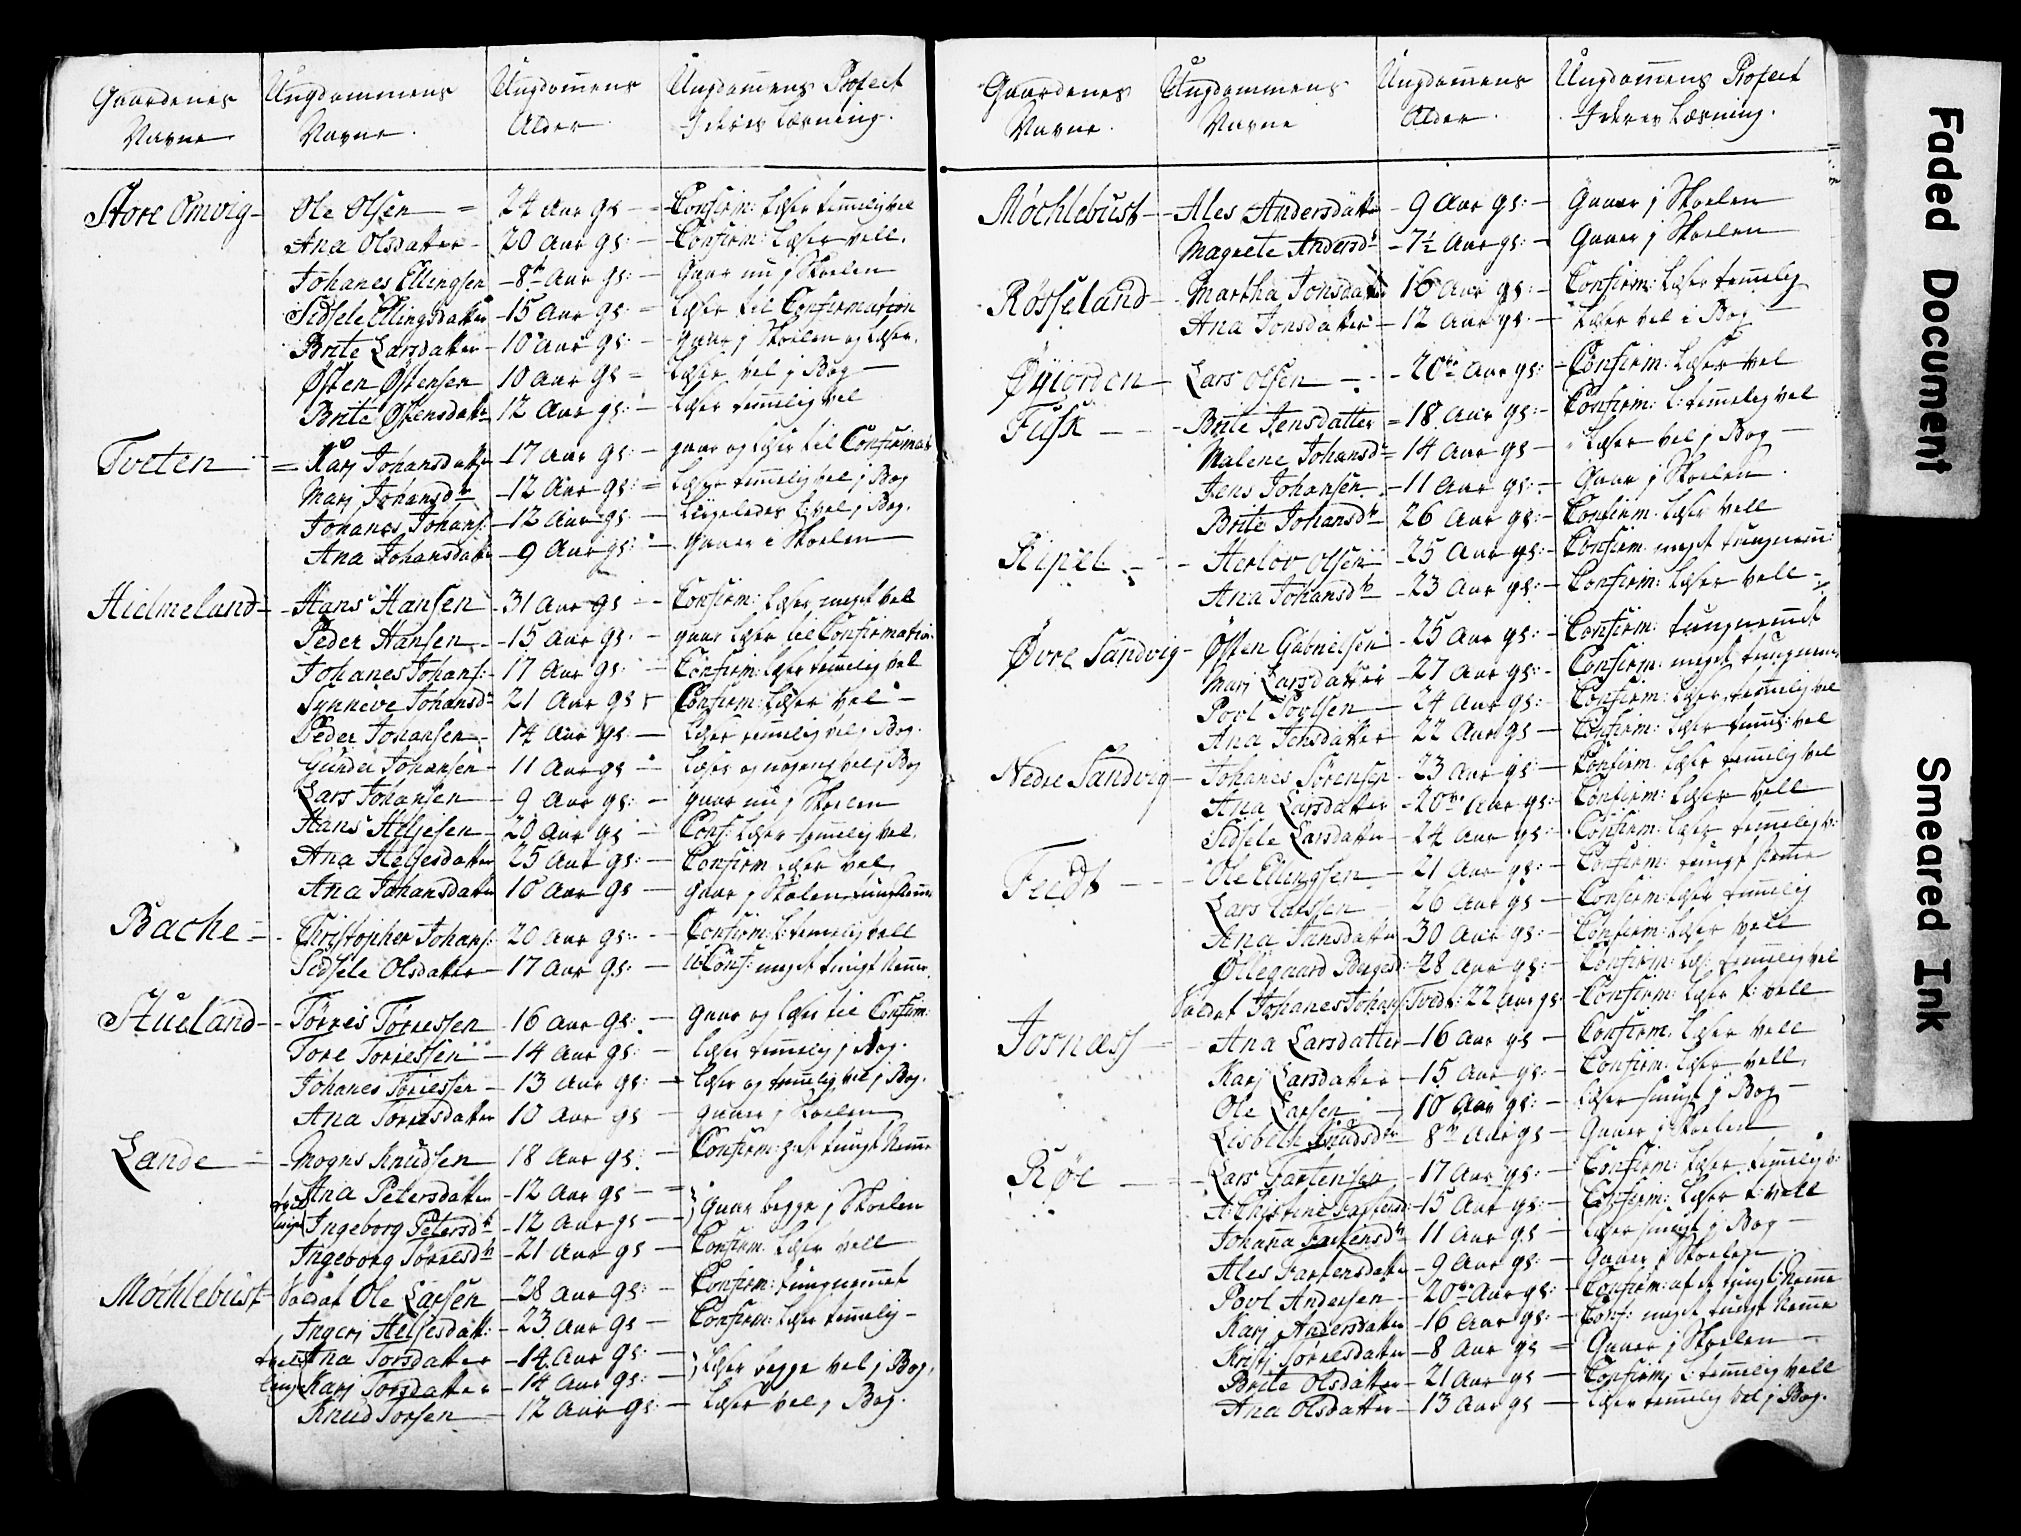 Gaardenes Navne
Ungdommens Navne
Ungdom̄ens Alder
Ungdom̄ens Profect I deres Læsning.
Store Omvig - Ole Olsen - 24 Aar gs - Confirm: Læser tem̄elig vel
Ana Olsdatter - 20 Aar gs: - Confirm: Læser vell.
Johanes Ellingsen - 8te Aar gs: - gaar nu j Skoelen
Sidsele Ellingsdatter - 15 Aar gs: - Læser til Confirmation
Brite Larsdatter - 10 Aar gs: - gaar j Skoelen og Læser.
Østen Østensen 10 Aar gs - Læser vel j Bog -
Brite Østensdatr 12 Aar gs: - Læser tem̄elig vel
Tveten - Karj Johansdatr - 17 Aar gs: - gaar og Læser til Confirmat:
Marj Johansdr - 12 Aar gs: - Læser tem̄elig vel j Bog
Johanes Johans: - 12 Aar gs: - Ligeledes L: vel j Bog.
Ana Johansdatr - 9 Aar gs: - gaaer i Skoelen
Hielmeland - Hans Hansen - 31 Aar gs - Confirm: Læser meget vel
Peder Hansen - 15 Aar gs: - gaar Læser til Confirmation
Johanes Johans: - 17 Aar gs: - Confirm: Læser tem̄elig vel
Synneve Johansdr - 21 Aar gs - Confirm: Læser vel -
Peder Johansen - 14 Aar gs: - Læser tem̄elig vel j Bog.
Gunder Johansen - 11 Aar gs - Læser og nogens vel j Bog
Lars Johansen - 9 Aar gs: - gaar nu j Skoelen
Hans Heljesen - 20 Aar gs - Conf: Læser tem̄elig vel.
Ana Heljesdatter 25 Aar gs: - Confirm Læser vel
Ana Johansdatter 10 Aar gs - gaar j Skolen
Bache - Christopher Johans: 20 Aar gs: - Confirm: L: tem̄elig vell
Sidsele Olsdatter - 17 Aar gs: - u: Conf: meget tungt Nem̄e
Hueland - Törres Törressen - 16 Aar gs: - gaar og Læser til Confirm:
Tore Torressen - 14 Aar gs: - Læser tem̄elig j Bog.
Johanes Törressen - 13 Aar gs: - Læser og tem̄elig vel j Bog.
Ana Torresdatter 10 Aar gs - gaaer j Skoelen
Lande - Mogns Knudsen 18 Aar gs: - Confirm: tungt Nem̄e
tvillinger Ana Petersdatter - 12 Aar gs - } gaar begge j Skoelen
Ingeborg Petersdr - 12 Aar gs -
Ingeborg Törresdr - 21 Aar gs - Confirm: Læser vell
Möchlebust - Soldat Ole Larsen - 28 Aar gs: - Confirm: tungnem̄et
Ingerj Heljesdatt: - 23 Aar gs - Confirm: Læser tem̄elig -
tvillinger Ana Torsdatter - 14 Aar gs: - } Læser begge vel j Bog.
Karj Torsdatter - 14 Aar gs: -
Knud Torsen - 12 Aar gs: - Læser vel j Bog.
Gaardenes Navne.
Ungdommens Navne
Ungdom̄ens Alder.
Ungdom̄ens Profect I deres Læsning.
Möchlebust - Ales Andersdatter - 9 Aar gs: - Gaaer j Skoelen
Magrete Andersdr - 7½ Aar gs: - Gaaer j Skoelen
Rösseland - Martha Jonsdatter 16 Aar gs: - Confirm: Læser tem̄elig
Ana Jonsdatter - 12 Aar gs: - Læser vel i Bog -
Øyjorden - Lars Olsen - 20de Aar gs: - Confirm: Læser vel
Fusk - Brite Jensdatter - 18 Aar gs: - Confirm: L: tem̄elig vel
Malene Johansdr - 14 Aar gs - Læser vel j Bog -
Jens Johansen - 11 Aar gs: - Gaar j Skoelen.
Brite Johansdr - 26 Aar gs: - Confirm: Læser vell
Kipel - Herlov Olsen - 25 Aar gs: - Confirm: meget tungnem:
Ana Johansdr - 23 Aar gs: - Confirm: Læser vell -
Øvre Sandvig - Østen Gabrielsen - 25 Aar gs: - Confirm: tungnem̄et
Marj Larsdatter - 27 Aar gs: - Confirm: meget tungnem:
Povl Povlsen - 24 Aar gs: - Confirm: Læser tem̄elig vel
Ana Jensdatter 22 Aar gs - Confirm: Læser tem̄el: vel
Nedre Sandvig - Johanes Sörensen - 23 Aar gs: - Confirm: Læser tem̄elig vel
Ana Larsdatter - 20de Aar gs: - Confirm: Læser vell
Sidsele Larsdatter - 24 Aar gs: - Confirm: Læser tem̄elig v:
Feedt - Ole Ellingsen - 21 Aar gs: - Confirm: tungt
Lars Larssen - 26 Aar gs - Confirm: Læser tem̄elig
Ana Jansdatter - 30 Aar gs: - Confirm: Læser vell
Øllegaard Bergesd: - 28 Aar gs: - Confirm: Læs: tem̄elig vel
Soldat Johanes Johans: Tvedt: 22 Aar gs: - Confirm: Læser t: vell
Jornæss - Ana Larsdatter - 16 Aar gs - Confirm: Læser vell
Karj Larsdatter - 15 Aar gs: - Confirm: Læser vell.
Ole Larsen - 10 Aar gs: - Læser smugt j Bog -
Lisbeth Knudsdr 8te Aar gs - Gaaer j Skoelen
Röe - Lars Fartensen - 17 Aar gs: - Confirm: Læser tem̄elig v:
A: Christine Fartensd: - 15 Aar gs: - Confirm: Læser t: vell
Johana Fartensdr 11 Aar gs - Læser smugt j Bog -
Ales Fartensdatter - 9 Aar gs: - Gaaer j Skoelen
Povl Andersen - 20de Aar gs: - Confirm: af et tungt Nem̄e
Karj Andersdatter - 16 Aar gs: - Conf: meget tungt Nem̄e
Kristj Törresdatter - 8 Aar gs - Gaaer j Skoelen -
Brite Olsdatter - 21 Aar gs - Confirm: L: tem̄elig vell
Ana Olsdatter - 13 Aar gs - Læser tem̄elig vel j Bog.
Faded Document
Smeared Ink